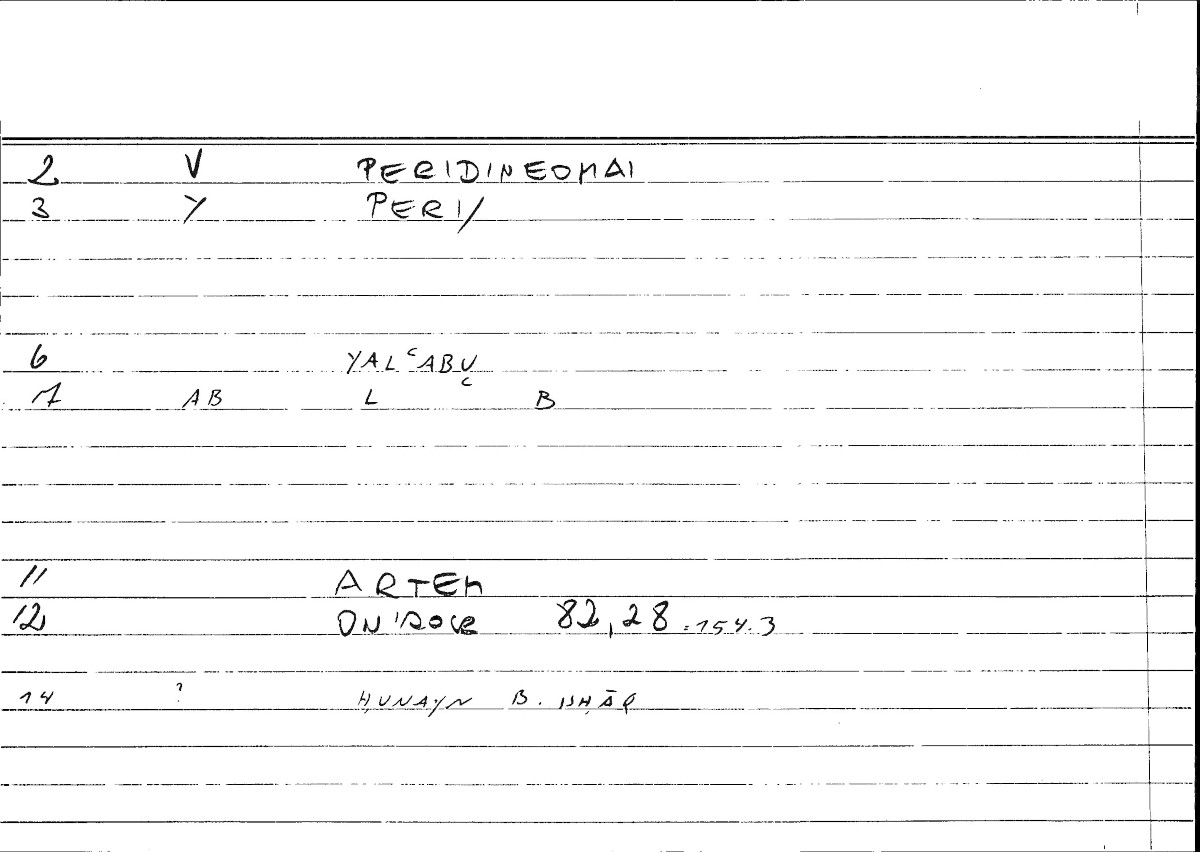 2 V PERIDINEOMAI
3 Y PERI/
6 YALʿABU
7 AB L ʿ B
11 ARTEM
12 ONIROCR 82,28 = 154.3
14 ? ḤUNAYN B. ISḤĀQ